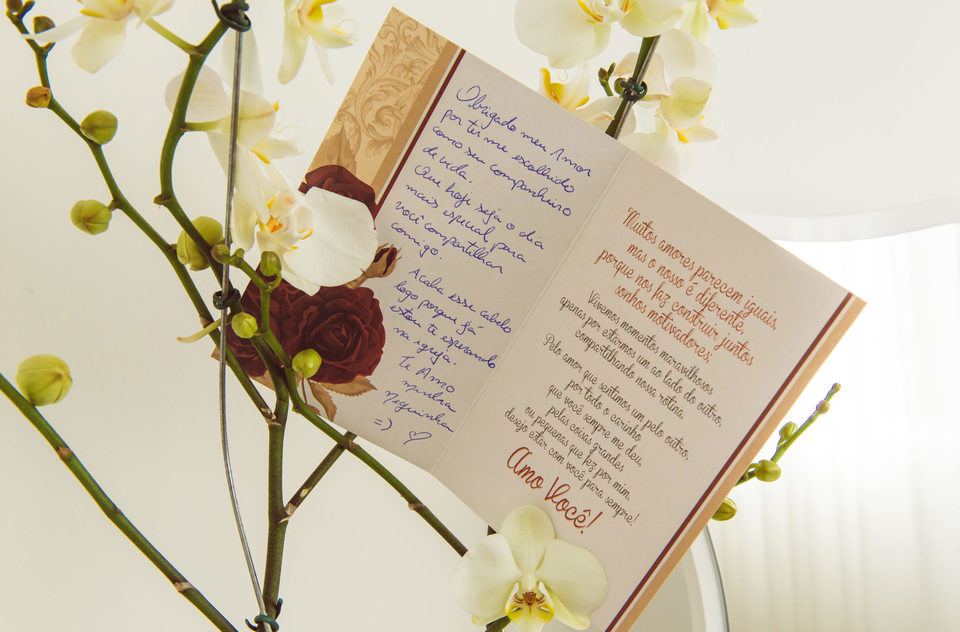 Obrigado meu Amor
por ter me escolhido
como seu companheiro
de vida.
Que hoje seja o dia
mais especial para
você compartilhar
comigo.
Acaba esse cabelo
logo porque já
estou te esperando
na igreja.
Te Amo
minha
Neguinha
=) ♡
Muitos amores parecem iguais,
mas o nosso é diferente,
porque nos faz construir juntos
sonhos motivadores:
Vivemos momentos maravilhosos
apenas por estarmos um ao lado do outro,
compartilhando nossa rotina.
Pelo amor que sentimos um pelo outro,
por todo o carinho
que você sempre me deu,
pelas coisas grandes
ou pequenas que fez por mim,
desejo estar com você para sempre!
Amo Você!